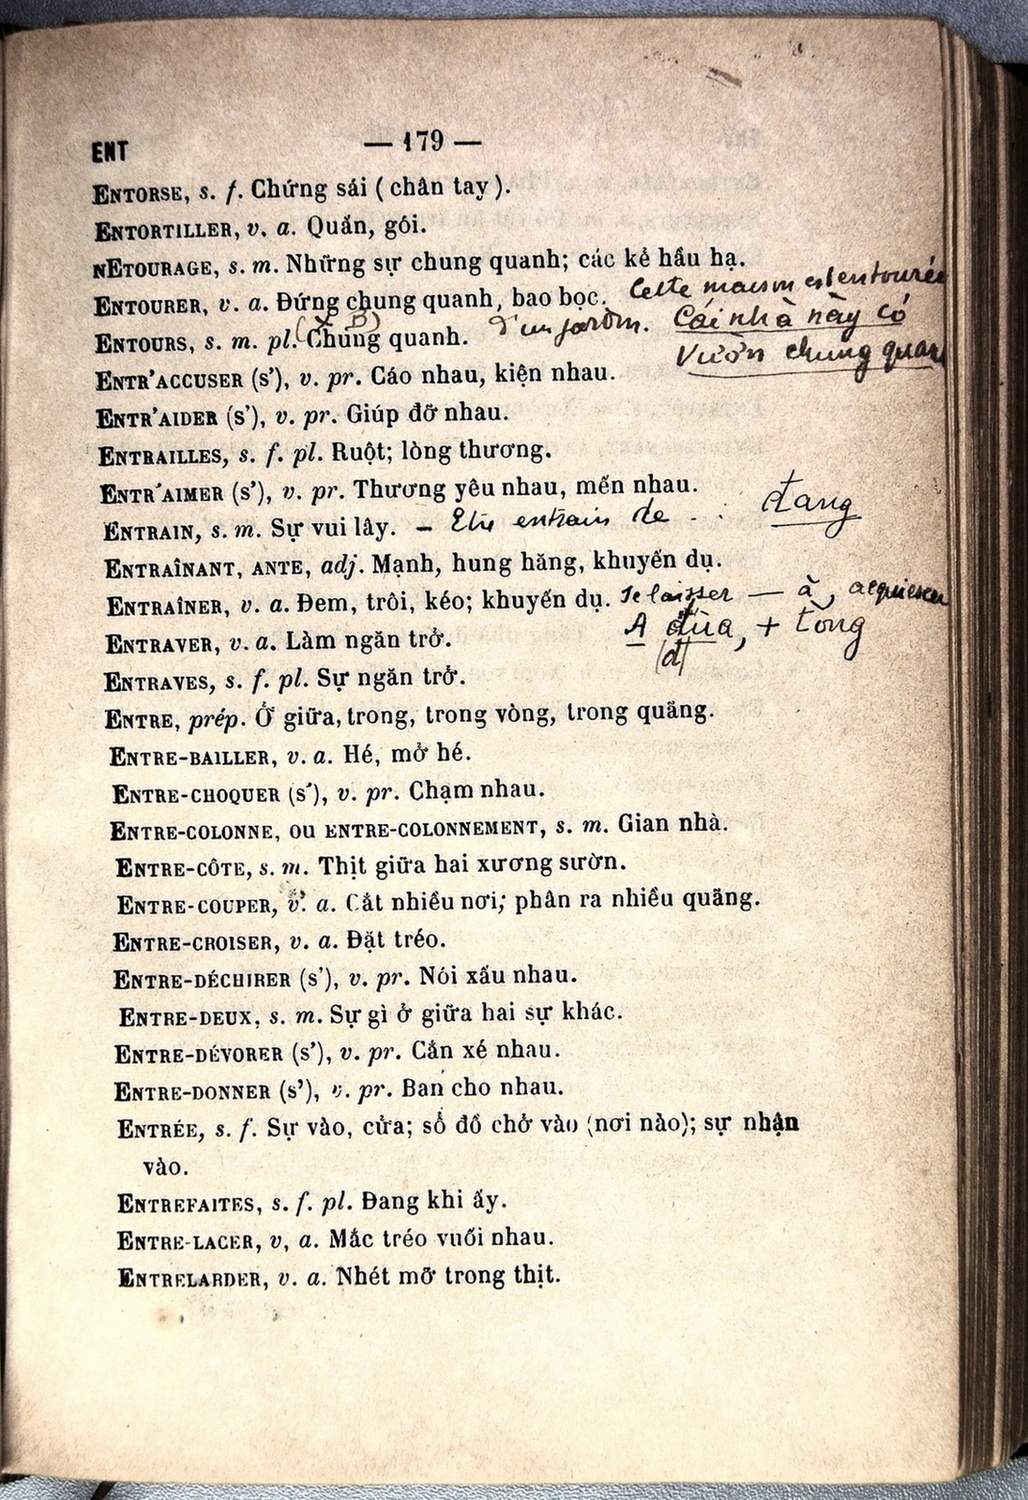 ENT — 179 —
ENTORSE, s. f. Chứng sái ( chân tay ).
ENTORTILLER, v. a. Quấn, gói.
NETOURAGE, s. m. Những sự chung quanh; các kẻ hầu hạ.
ENTOURER, v. a. Đứng chung quanh, bao bọc. Cette maison est entourée
ENTOURS, s. m. pl. Chung quanh. d'un jardin. Cái nhà này có
vườn chung quanh
ENTR'ACCUSER (s'), v. pr. Cáo nhau, kiện nhau.
ENTR'AIDER (s'), v. pr. Giúp đỡ nhau.
ENTRAILLES, s. f. pl. Ruột; lòng thương.
ENTR'AIMER (s'), v. pr. Thương yêu nhau, mến nhau.
ENTRAIN, s. m. Sự vui lây. – Etre entrain de . . đang
ENTRAÎNANT, ANTE, adj. Mạnh, hung hăng, khuyến dụ.
ENTRAÎNER, v. a. Đem, trôi, kéo; khuyến dụ. se laisser — à, acquiescer
ENTRAVER, v. a. Làm ngăn trở. A đùa, + tòng
(đ)
ENTRAVES, s. f. pl. Sự ngăn trở.
ENTRE, prép. Ở giữa, trong, trong vòng, trong quãng.
ENTRE-BAILLER, v. a. Hé, mở hé.
ENTRE-CHOQUER (s'), v. pr. Chạm nhau.
ENTRE-COLONNE, OU ENTRE-COLONNEMENT, s. m. Gian nhà.
ENTRE-CÔTE, s. m. Thịt giữa hai xương sườn.
ENTRE-COUPER, v. a. Cắt nhiều nơi; phân ra nhiều quãng.
ENTRE-CROISER, v. a. Đặt tréo.
ENTRE-DÉCHIRER (s'), v. pr. Nói xấu nhau.
ENTRE-DEUX, s. m. Sự gì ở giữa hai sự khác.
ENTRE-DÉVORER (s'), v. pr. Cắn xé nhau.
ENTRE-DONNER (s'), v. pr. Ban cho nhau.
ENTRÉE, s. f. Sự vào, cửa; số đồ chở vào (nơi nào); sự nhận
vào.
ENTREFAITES, s. f. pl. Đang khi ấy.
ENTRE-LACER, v, a. Mắc tréo vuối nhau.
ENTRELARDER, v. a. Nhét mỡ trong thịt.